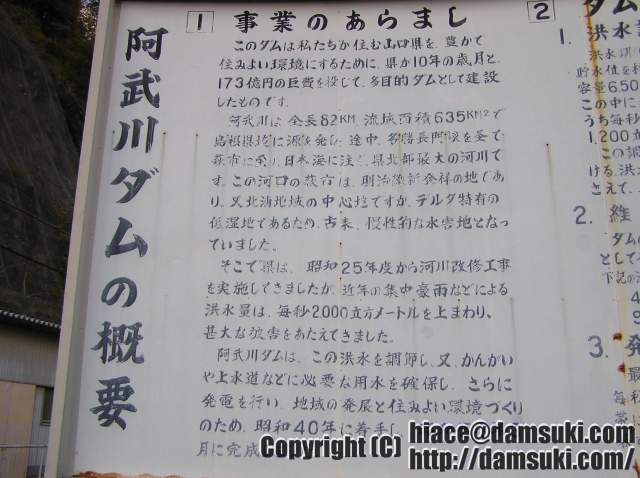 阿武川ダムの概要
1 事業のあらまし
このダムは私たちが住む山口県を、豊かで
住みよい環境にするために、県が10年の歳月と、
173億円の巨費を投じて、多目的ダムとして建設
したものです。
阿武川は全長82KM、流域面積635KM²で
島根県境に源を発し、途中、名勝長門峡を至て
萩市に至り日本海に注ぐ県北部最大の河川で
す。この河口の萩市は、明治維新発祥の地であ
り、又北浦地域の中心地ですが、デルタ特有の
低湿地であるため、古来、慢性的な水害地となっ
ていました。
そこで県は、昭和25年度から河川改修工事
を実施してきましたが、近年の集中豪雨などによる
洪水量は、毎秒2000立方メートルを上まわり、
甚大な被害をあたえてきました。
阿武川ダムは、この洪水を調節し、又、かんがい
や上水道などに必要な用水を確保し、さらに
発電を行い、地域の発展と住みよい環境づくり
のため、昭和40年に着手し、
月に完成
2 ダム
1. 洪水
洪水期
貯水位を
容量6,50
この中に
うち毎秒
1,200立方
この調
ける、洪水
さえて、
2. 維
ダムの
として
下記の
3. 発
最
毎秒
Copyright (C) hiace@damsuki.com
http://damsuki.com/